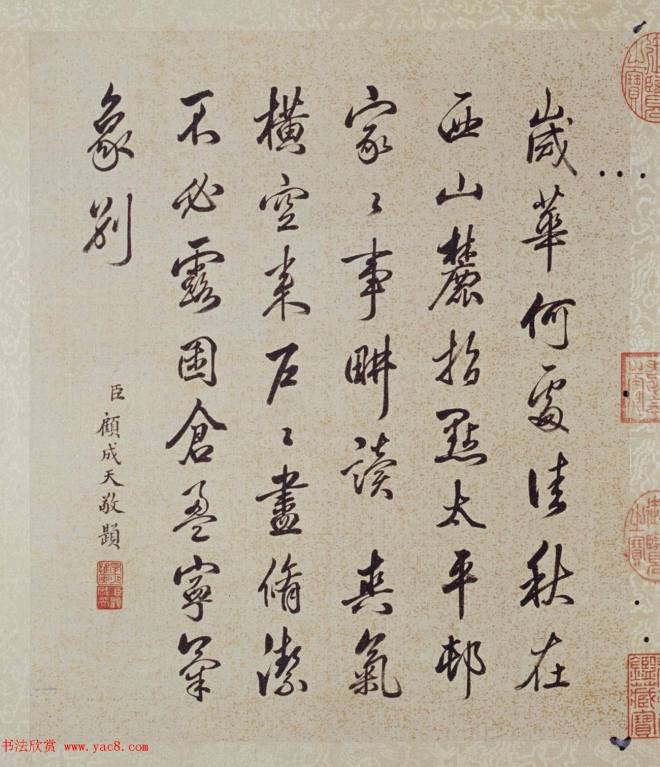 歲華何處佳秋在
西山麓指點太平邨
家〻事畊讀爽氣
橫空來戶〻盡脩潔
不必露囷倉盈寧氣
象別
臣顧成天敬題
书法欣赏 www.yac8.com